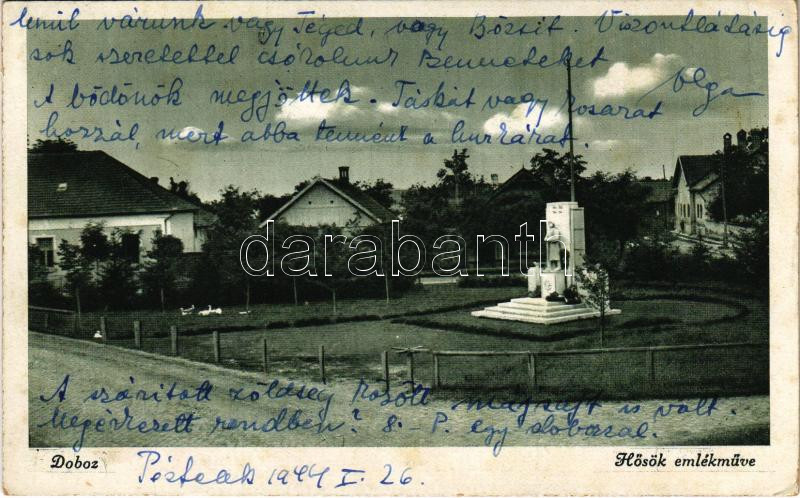 lenül várunk vagy Téged, vagy Bözsit. Viszontlátásig
sok szeretettel csókolunk Benneteket
Olga
A bödönök megjöttek. Táskát vagy kosarat
hozzál, mert abba tennént a hurkárat.
darabanth
A szárított zöldség között magsajt is volt.
Megérkezett rendben? 8.- P. egy doboz
Doboz
Hősök emlékműve
1944 I. 26.